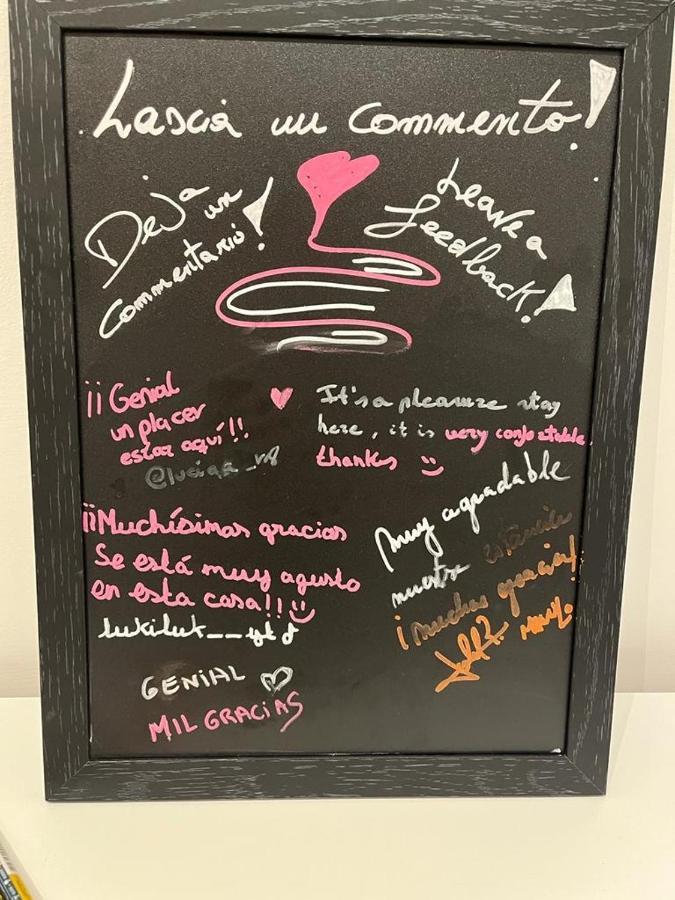 Lascia un commento!
Deja un
commentario!
Leave a
feedback!
¡¡Genial
un placer
estar aquí!!
It's a pleasure stay
here, it is very confortable,
thanks
Muy agradable
nuestra estancia
¡Muchas gracias!
¡¡Muchísimas gracias
Se está muy agusto
en esta casa!!
GENIAL
MIL GRACIAS